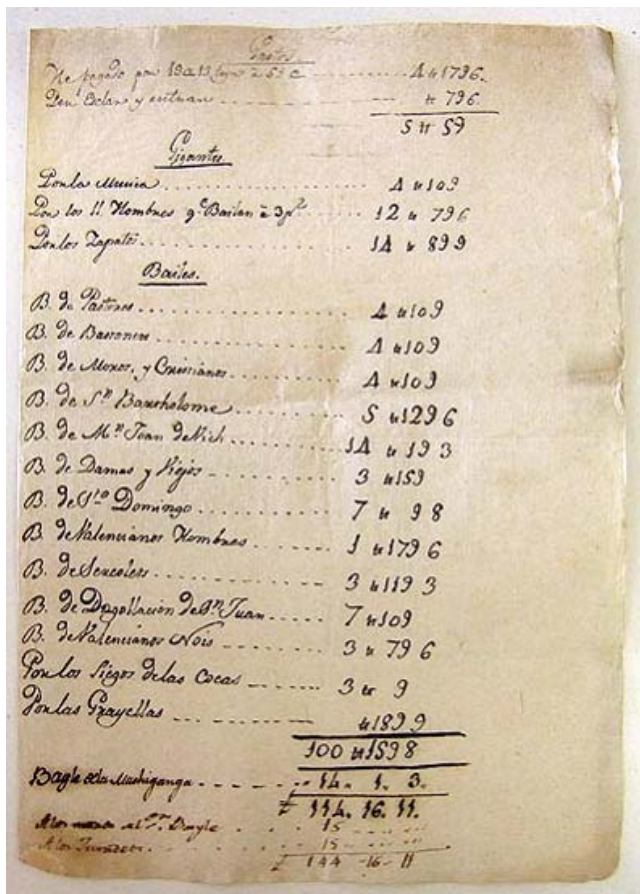 Gastos.
He pagado por
Den. y ......... 796.
5 " 59
Gigantes
Por la Musica ......... 4 " 10 9
Por los 11 Hombres q.e Bailan à 3 p.s 12 " 79 6
Por los Zapatos ......... 14 " 89 9
Bailes.
B. de Pastores ......... 4 " 10 9
B. de Bastones ......... 4 " 10 9
B. de Moros, y Cristianos ......... 4 " 10 9
B. de S.n Bartholome ......... 5 " 129 6
B. de M.n Juan de Vich ......... 14 " 19 3
B. de Damas y Viejos ......... 3 " 15 9
B. de S.to Domingo ......... 7 " 9 8
B. de Valencianos Hombres ......... 1 " 179 6
B. de Sercolets ......... 3 " 119 3
B. de Degollacion de S.n Juan ......... 7 " 10 9
B. de Valencianos Nois ......... 3 " 79 6
Por los Siegos de las Cocas ......... 3 " 9
Por las Grayellas ......... " 189 9
100 " 159 8
Bayle de la Mushiganga ......... 14. 1. 3.
114. 16. 11.
al S.r Bayle ......... 15
A los ......... 15
144 - 16 - 11